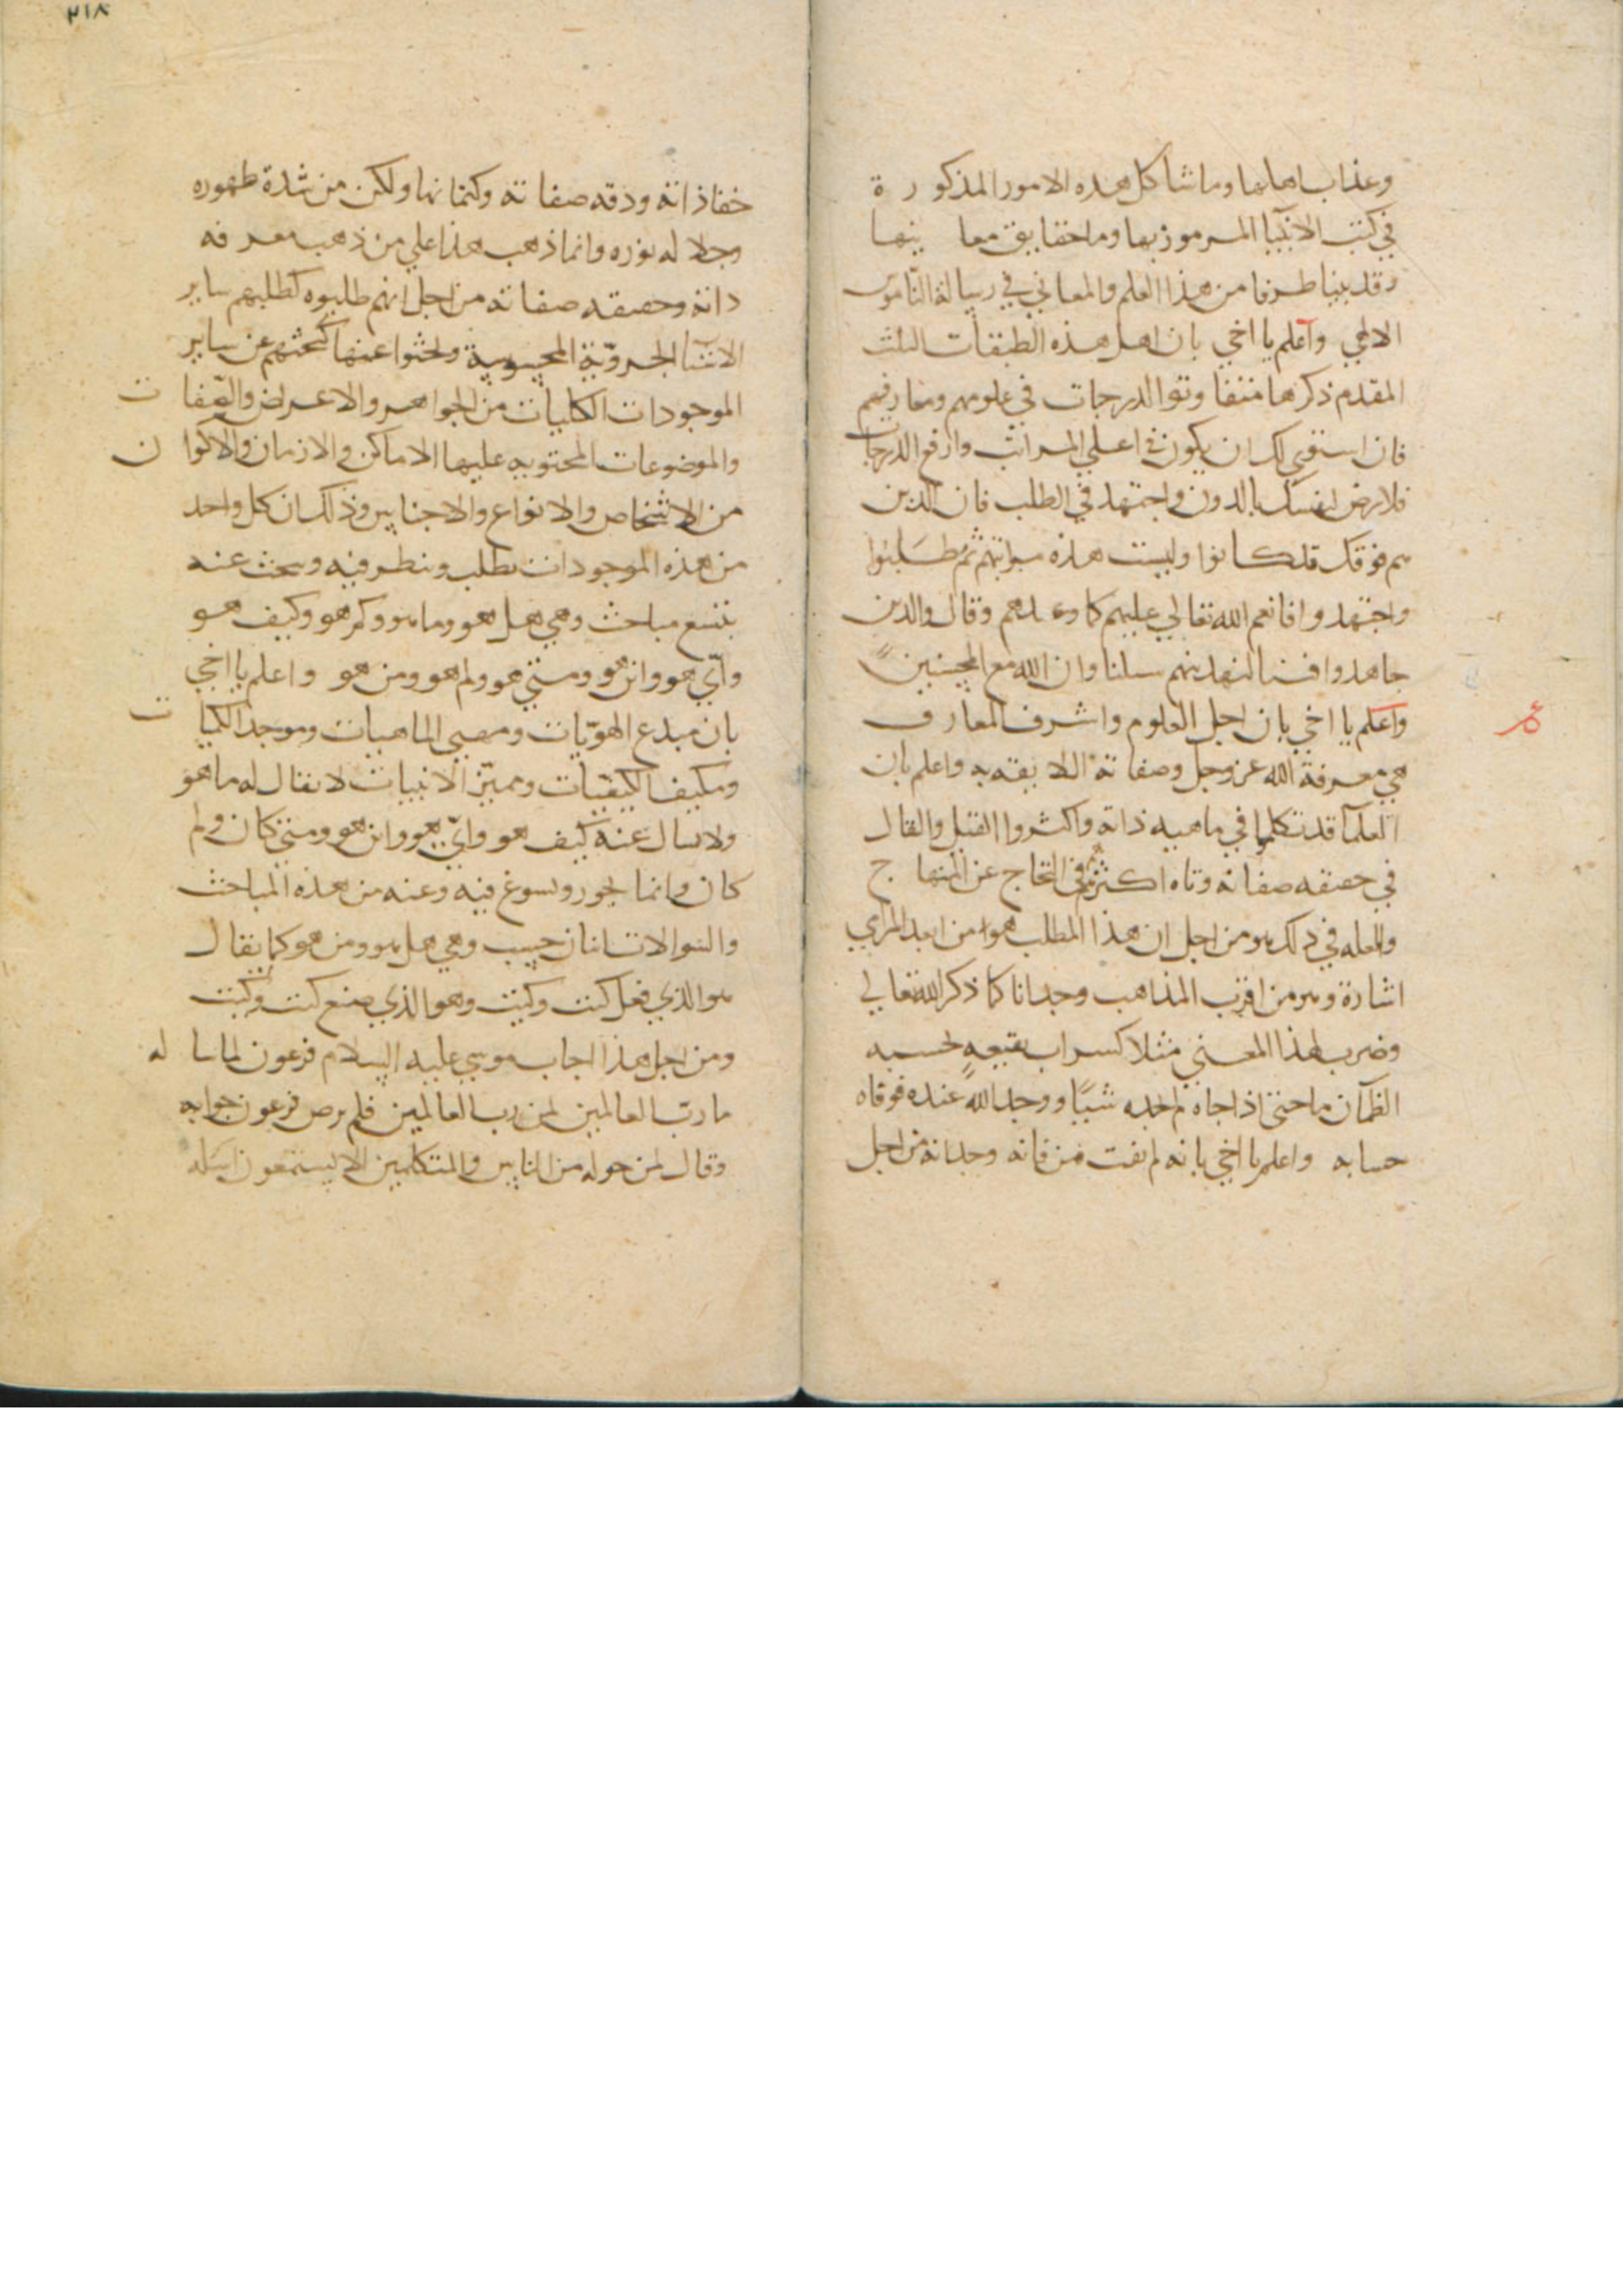 وعذاب اهلها وما شاكل هذه الامور المذكورة
في كتب الانبيا المرموز بها وما حقايق معا نيها
وقد بينا طرفا من هذا العلم والمعاني في رسالة الناموس
الالهي واعلم يا اخي بان اهل هذه الطبقات الثلث
المقدم ذكرها متفاوتوا الدرجات في علومهم ومعارفهم
فان استوي لك ان يكون في اعلي المراتب وارفع الدرجات
فلا ترض لنفسك بالدون واجتهد في الطلب فان الذين
هم فوقك قد كانوا وليست هذه مراتبهم ثم طلبوا
واجتهدوا فانعم الله تعالي عليهم كما وعدهم وقال والذين
جاهدوا فينا لنهدينهم سبلنا وان الله مع المحسنين
واعلم يا اخي بان اجل العلوم واشرف المعارف
هي معرفة الله عز وجل وصفاته اللايقه به واعلم بان
العلمآ قد تكلموا في ماهيه ذاته واكثروا القيل والقال
في حقيقه صفاته وتاه اكثرهم في الحجاج عن المنهاج
والعله في ذلك هو من اجل ان هذا المطلب هو من ابعد المرامي
اشارة وهو من اقرب المذاهب وجدانا كما ذكر الله تعالي
وضرب لهذا المعني مثلا كسراب بقيعةٍ يحسبه
الظمآن ما حتي اذا جاه لم يجده شيئًا ووجد الله عنده فوفاه
حسابه واعلم يا اخي بانه لم يفت من فاته وجدانه من اجل
٢١٨
خفا ذاته ودقه صفاته وكتمانها ولكن من شدة ظهوره
وجلاله نوره وانما ذهب هذا علي من ذهب معرفه
ذاته وحقيقه صفاته من اجل انهم طلبوه كطلبهم ساير
الاشيآ الجزويّة المحسوسة وبحثوا عنها كبحثهم عن ساير
الموجودات الكليات من الجواهر والاعراض والصّفات
والموضوعات المحتويه عليها الاماكن والازمان والاكوان
من الاشخاص والانواع والاجناس وذلك ان كل واحد
من هذه الموجودات يطلب وينظر فيه ويبحث عنه
بتسع مباحث وهي هل هو وما هو وكم هو وكيف هو
وايّ هو واين هو ومتي هو ولم هو ومن هو واعلم يا اخي
بان مبدع الهويّات ومهيي الماهيات وموجد الكميات
ومكيف الكيفيّات ومميّز الاينيات لا يقال له ما هو
ولا يسال عنه كيف هو وايّ هو واين هو ومتي كان ولم
كان وانما يجوز ويسوغ فيه وعنه من هذه المباحث
والسوالات اثنان حسب وهي هل هو ومن هو كما يقال
هو الذي فعل كيت وكيت وهو الذي صنع كيت وكيت
ومن اجل هذا اجاب موسي عليه السلام فرعون لما ساله
ما ربّ العالمين لمن رب العالمين فلم يرض فرعون جوابه
وقال لمن حوله من الناس والمتكلمين الا يستمعون اسله